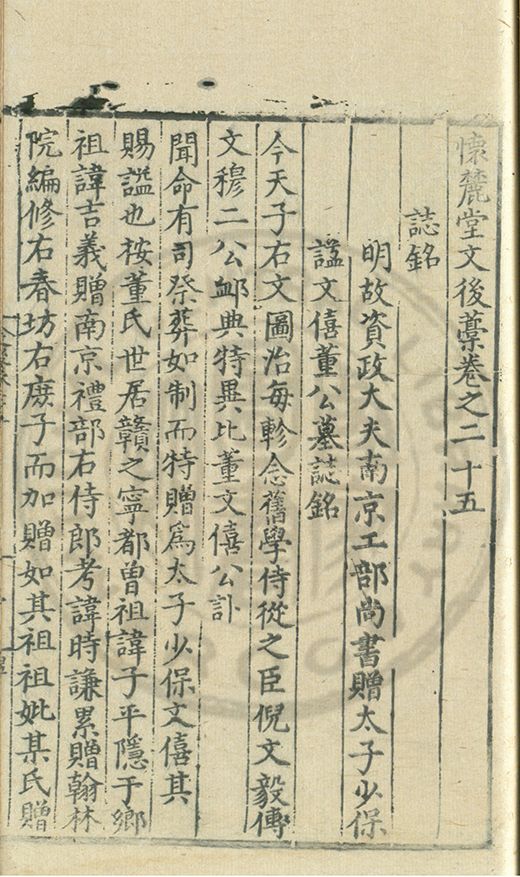 懷麓堂文後藁卷之二十五
誌銘
明故資政大夫南京工部尚書贈太子少保
謚文僖董公墓誌銘
今天子右文圖治每軫念舊學侍從之臣倪文毅傅
文穆二公䘏典特異比董文僖公訃
聞命有司祭葬如制而特贈爲太子少保文僖其
賜謚也按董氏世居贛之寧都曾祖諱子平隱于鄉
祖諱吉義贈南京禮部右侍郎考諱時謙累贈翰林
院編修右春坊右庶子而加贈如其祖祖妣某氏贈